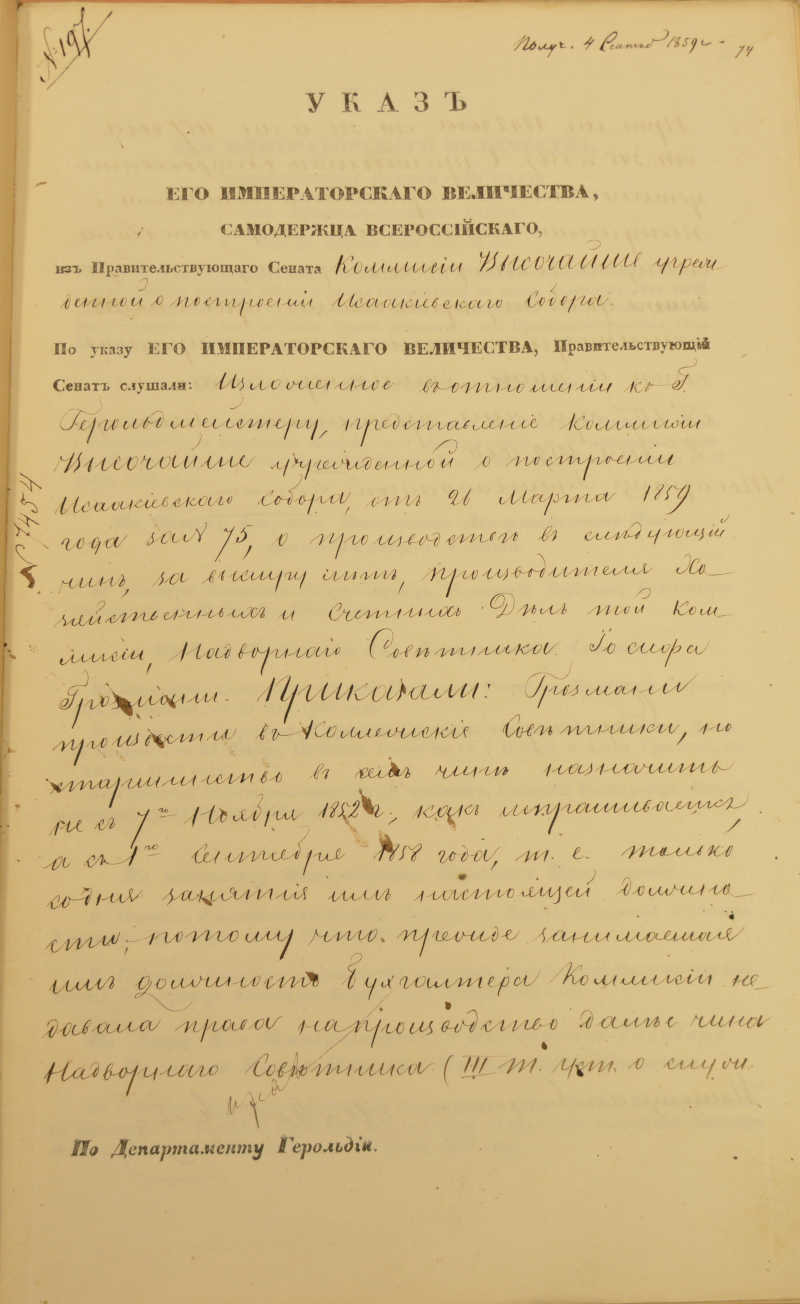 № 197.
Получ. 4 Сентяб 1859 г.
74
УКАЗЪ
ЕГО ИМПЕРАТОРСКАГО ВЕЛИЧЕСТВА,
САМОДЕРЖЦА ВСЕРОССІЙСКАГО,
изъ Правительствующаго Сената Коммисіи Высочайше учреж
денной о построеніи Исаакіевскаго Собора.
По указу ЕГО ИМПЕРАТОРСКАГО ВЕЛИЧЕСТВА, Правительствующій
Сенатъ слушали: Изложенное въ отношеніи къ Г.
Герольдмейстеру, представленіе Коммисіи
Высочайше учрежденной о построеніи
Исаакіевскаго Собора, отъ 26 Марта 1859
года за № 75, о производствѣ въ слѣдующій
чинъ, за выслугу лѣтъ, производителя Хо-
зяйственныхъ и Счетныхъ Дѣлъ той Ком-
мисіи, Надворнаго Совѣтника Іосифа
Грозмани. Приказали: Грозмани
произвести въ Коллежскіе Совѣтники, но
старшинство въ семъ чинѣ назначить
не съ 7го Ноября 1852 г., какъ испрашивается,
а съ 1го Сентября 1858 года, т. е. только
со дня занятія имъ настоящей должно-
сти, потому что прежде занимаемая
имъ должность Бухгалтера Коммисіи не
давала права на производство далѣе чина
Надворнаго Совѣтника (III т. Уст. о служ.
По Департаменту Герольдіи.